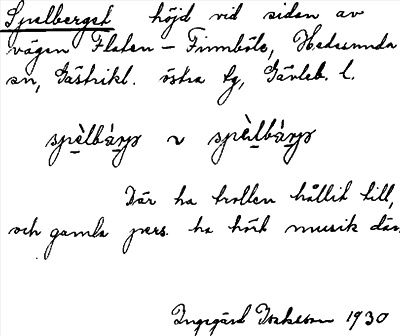 Spelberget höjd vid sidan av
vägen Flaten – Finnböle, Hedesunda
sn, Gästrikl. östra tg, Gävleb. l.
spèlbàrjə ~ spèlbàrjə
Där ha trollen hållit till,
och gamla pers. ha hört musik där.
Ingegärd Isaksson 1930